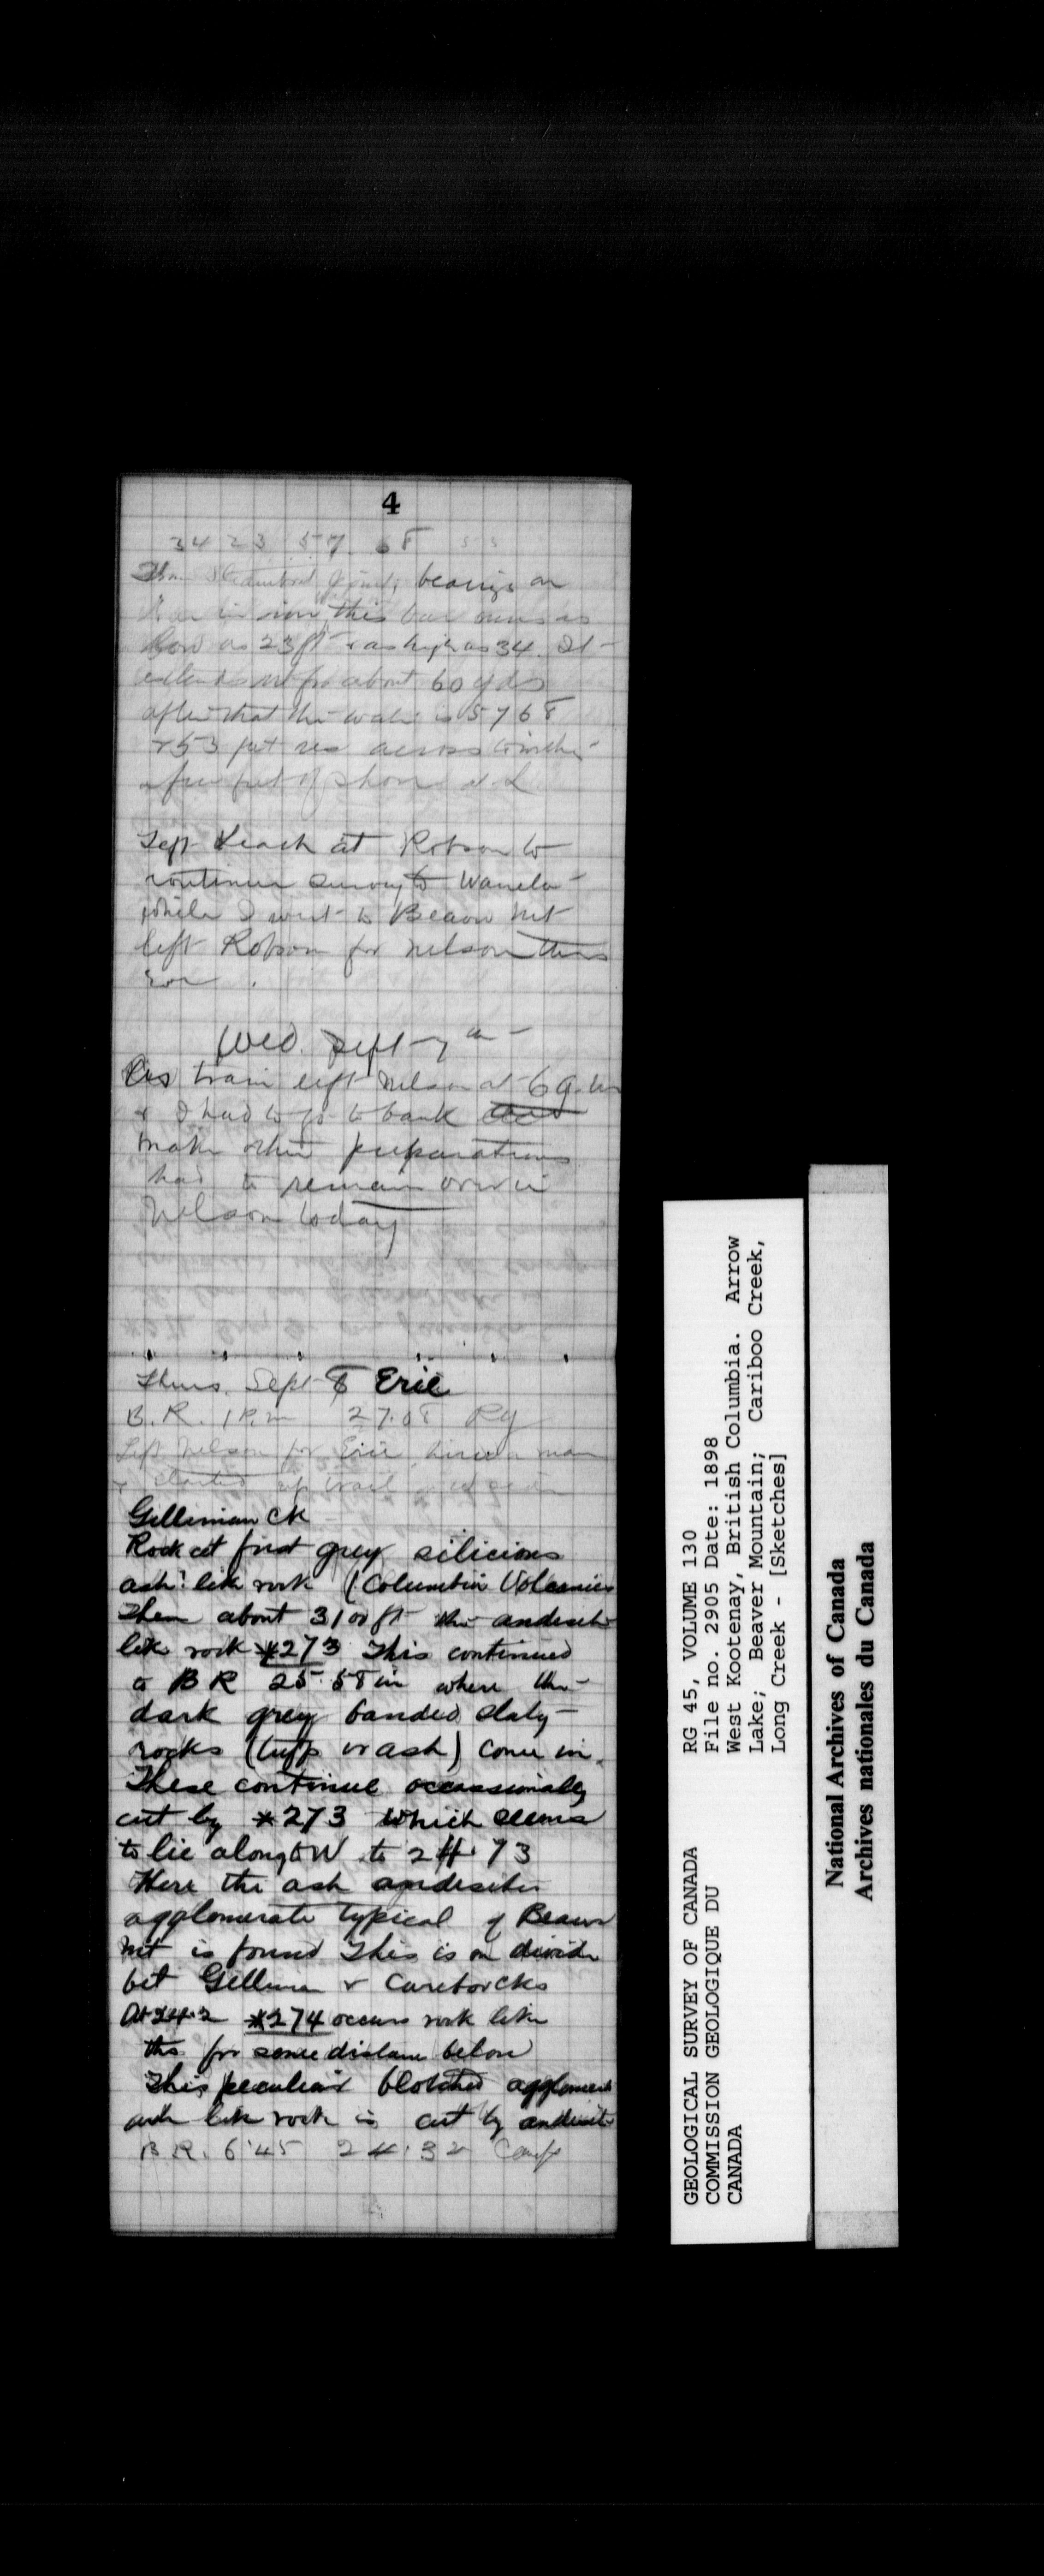 4
34 23 57. 68 55
Steamboat bearings on
this bar runs as
low as 23 ft & as high as 34. It
extends out for about 60 yds
after that the water is 57 68
& 53 feet across to within
a few feet of shore
Left Leach at Robson to
continue survey to Waneta
while I went to Beaver Mt
left Robson for Nelson this
Wed. Sept 7th
As train left Nelson at 6 a.m
& I had to go to bank
make other preparations
had to remain over in
Nelson today
Thurs. Sept 8 Erie
B.R. 1 P.m 27.08 Ry
Left Nelson for Erie, hired a man
& started up trail
Gilliman Ck
Rock at first grey silicious
ash like rock (Columbia Volcanics
Then about 3100 ft the andesite
like rock #273 This continued
to BR 25.58 in where the
dark grey banded slaty
rocks (tuff or ash) come in.
These continue occassionally
cut by #273 which seems
to lie along to W to 24.73
Here the ash andesite
agglomerate typical of Beaver
Mt is found This is on divide
bet Gilliman &
At 24.2 #274 occurs rock like
this for some distance below
This peculiar blotched agglomerate
ash like rock is cut by andesite
B.R. 6.45 24.32 Camp
GEOLOGICAL SURVEY OF CANADA
COMMISSION GEOLOGIQUE DU
CANADA
RG 45, VOLUME 130
File no. 2905 Date: 1898
West Kootenay, British Columbia. Arrow
Lake; Beaver Mountain; Cariboo Creek,
Long Creek - [Sketches]
National Archives of Canada
Archives nationales du Canada